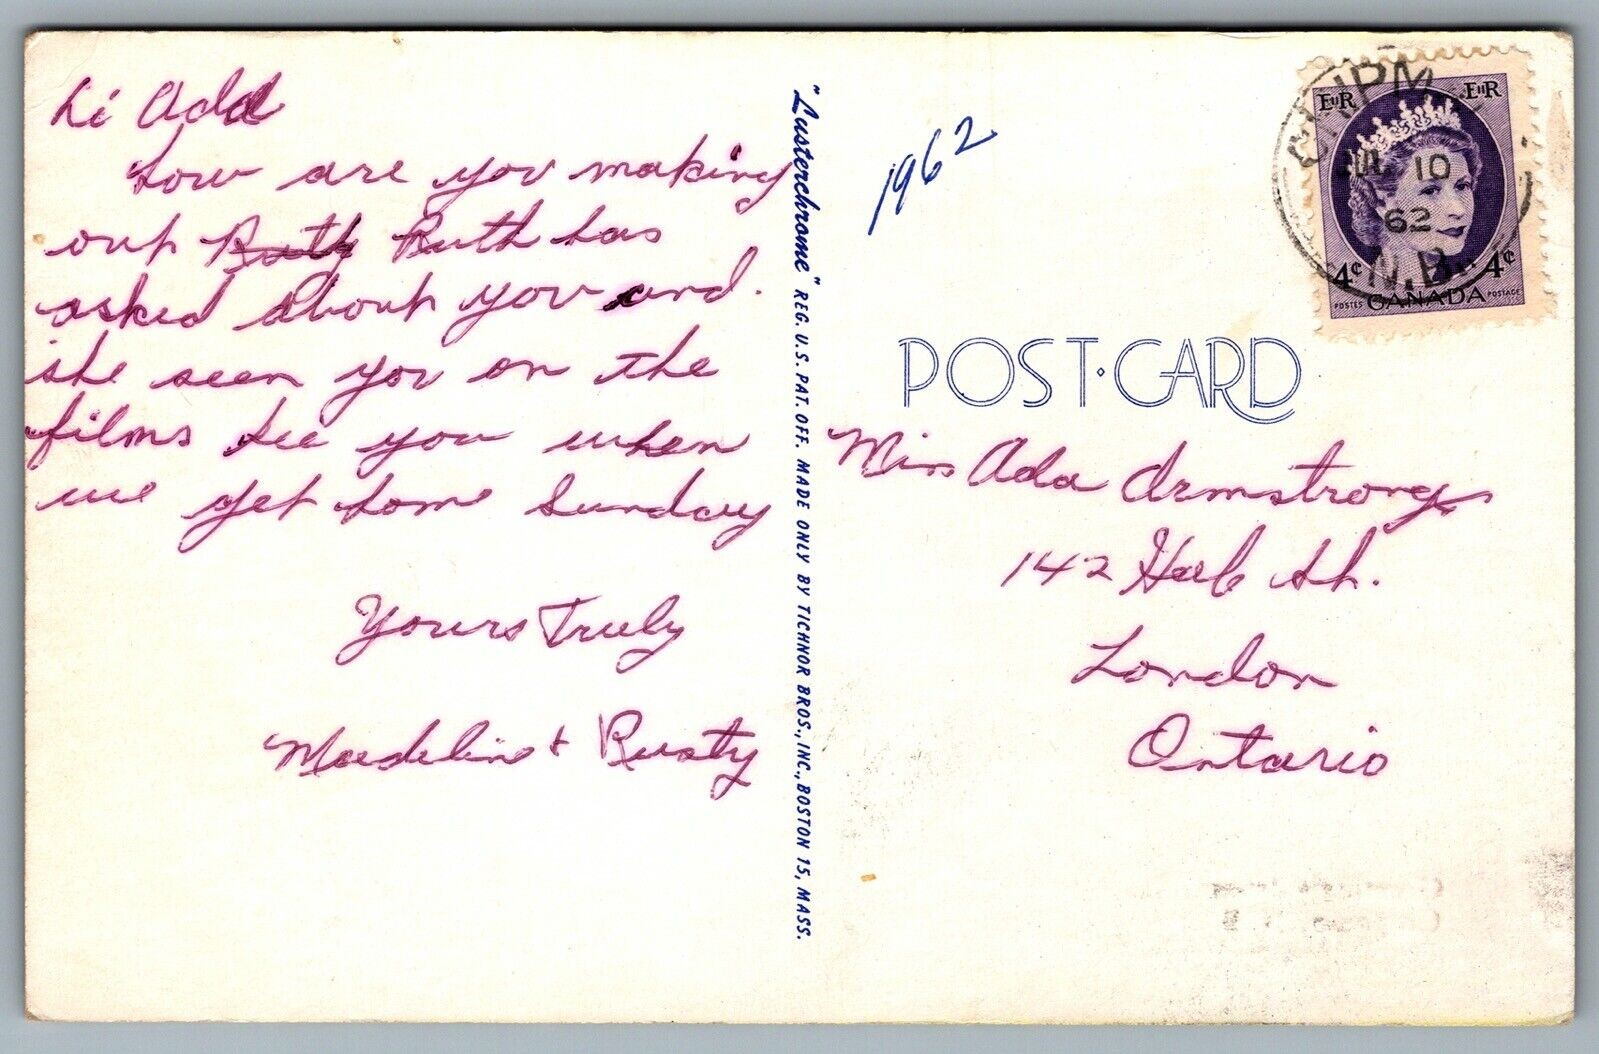 Hi Add
How are you making
out Ruth Ruth has
asked about you and.
she seen you on the
films see you when
we get home Sunday
Yours Truly
Madeline & Rusty
"Lusterchrome" REG. U.S. PAT. OFF. MADE ONLY BY TICHNOR BROS., INC., BOSTON 15, MASS.
1962
EIIR EIIR
10
62
N.B.
4¢ 4¢
POSTES POSTAGE
CANADA
POST·CARD
Miss Ada Armstrong
142 St.
London
Ontario